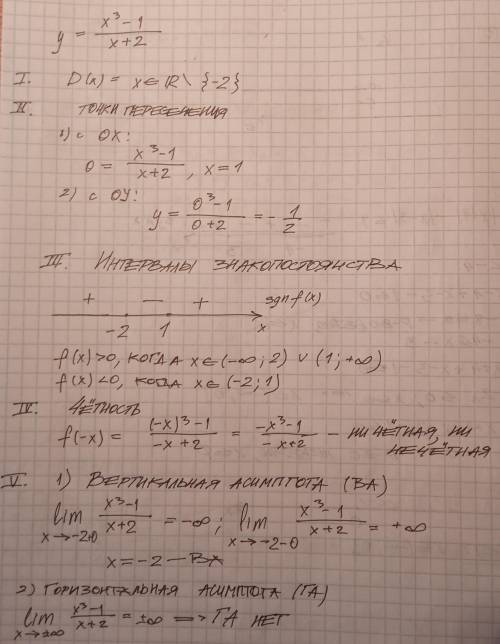 y = (x³ - 1)/(x + 2)
I. D(x) = x ∈ ℝ \ {-2}
II. ТОЧКИ ПЕРЕСЕЧЕНИЯ
1) С OX:
0 = (x³ - 1)/(x + 2), x = 1
2) С OУ:
y = (0³ - 1)/(0 + 2) = - 1/2
III. ИНТЕРВАЛЫ ЗНАКОПОСТОЯНСТВА
+ — + sgn f(x)
-2 1 x
f(x) > 0, КОГДА x ∈ (-∞; 2) ∪ (1; +∞)
f(x) < 0, КОГДА x ∈ (-2; 1)
IV. ЧЁТНОСТЬ
f(-x) = ((-x)³ - 1)/(-x + 2) = (-x³ - 1)/(-x + 2) - НИ ЧЁТНАЯ, НИ
НЕЧЁТНАЯ
V. 1) ВЕРТИКАЛЬНАЯ АСИМПТОТА (ВА)
lim x→-2+0 (x³ - 1)/(x + 2) = -∞; lim x→-2-0 (x³ - 1)/(x + 2) = +∞
x = -2 — ВА
2) ГОРИЗОНТАЛЬНАЯ АСИМПТОТА (ГА)
lim x→±∞ (x³ - 1)/(x + 2) = ±∞ => ГА НЕТ